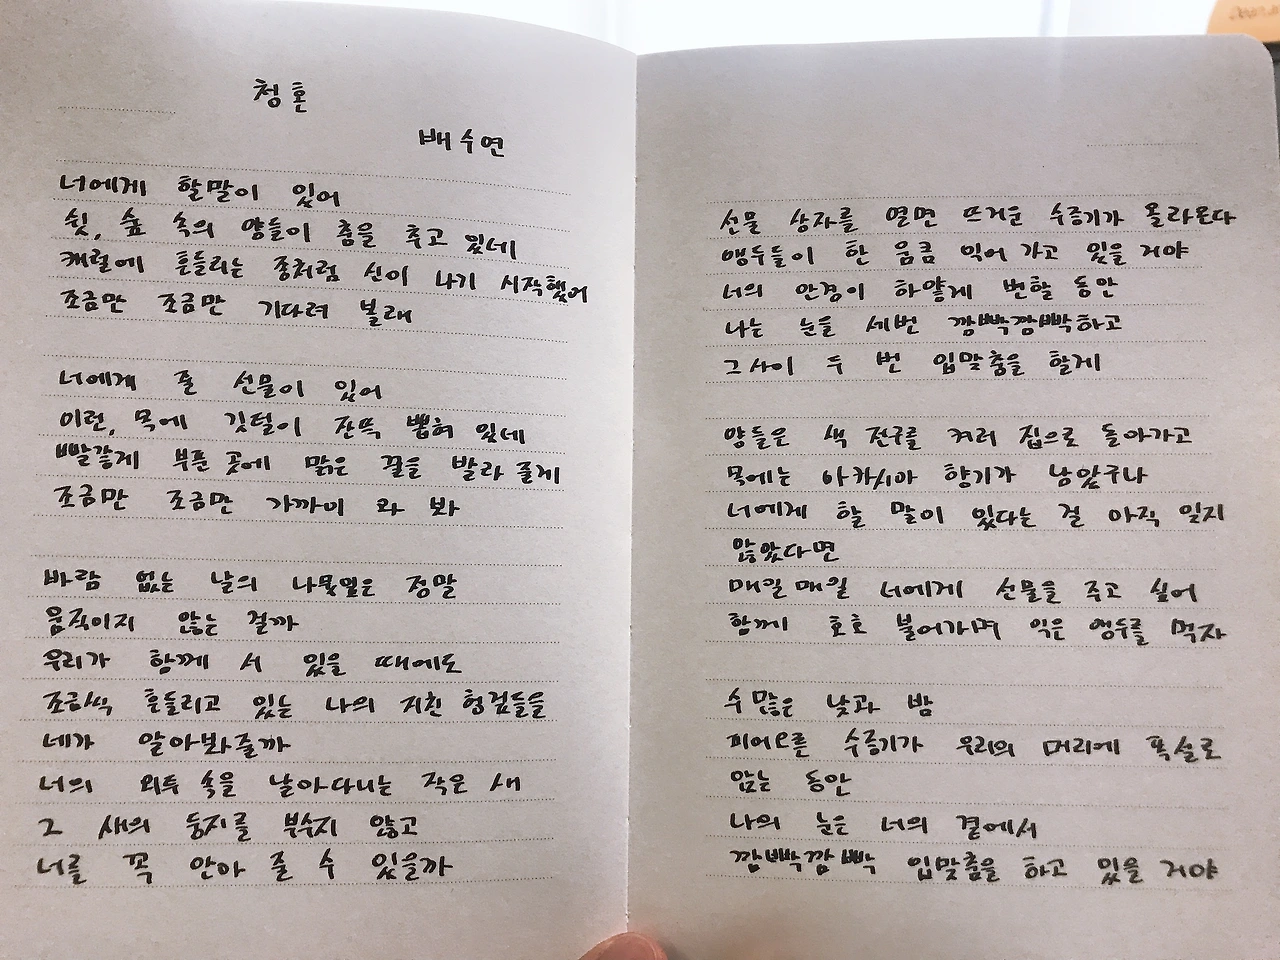 청혼
배수연
너에게 할말이 있어
쉿, 숲 속의 양들이 춤을 추고 있네
캐럴에 흔들리는 종처럼 신이 나기 시작했어
조금만 조금만 기다려 볼래
너에게 줄 선물이 있어
이런, 목에 깃털이 잔뜩 뽑혀 있네
빨갛게 부푼 곳에 맑은 꿀을 발라 줄게
조금만 조금만 가까이 와 봐
바람 없는 날의 나뭇잎은 정말
움직이지 않는 걸까
우리가 함께 서 있을 때에도
조금씩 흔들리고 있는 나의 지친 헝겊들을
네가 알아봐줄까
너의 외투 속을 날아다니는 작은 새
그 새의 둥지를 부수지 않고
너를 꼭 안아 줄 수 있을까
선물 상자를 열면 뜨거운 수증기가 올라온다
앵두들이 한 움큼 익어 가고 있을 거야
너의 안경이 하얗게 변할 동안
나는 눈을 세번 깜빡깜빡하고
그 사이 두 번 입맞춤을 할게
양들은 색 전구를 켜러 집으로 돌아가고
목에는 아카시아 향기가 남았구나
너에게 할 말이 있다는 걸 아직 잊지
않았다면
매일매일 너에게 선물을 주고 싶어
함께 호호 불어가며 익은 앵두를 먹자
수 많은 낮과 밤
피어오른 수증기가 우리의 머리에 폭설로
앉는 동안
나의 눈은 너의 곁에서
깜빡깜빡 입맞춤을 하고 있을 거야